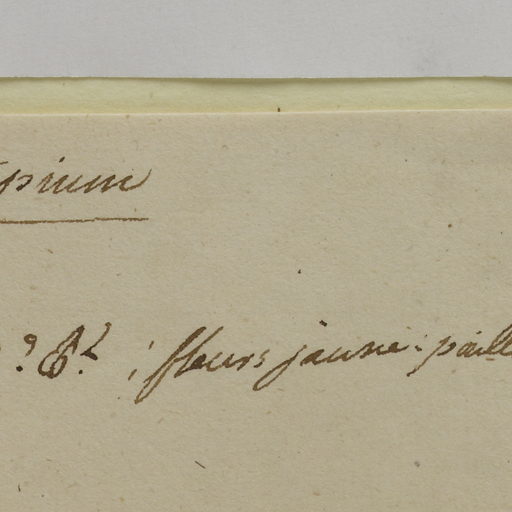 pium
; fleurs jaune-paill